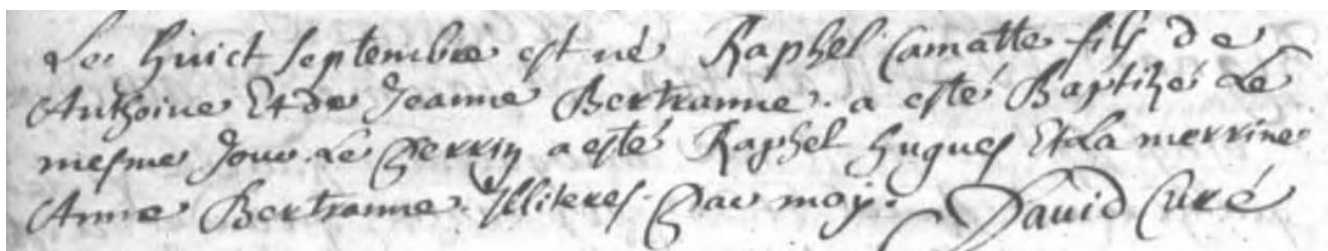 Le huict septembre est né Raphel Camatte fils de
Anthoine Et de Jeanne Bertranne. a esté Baptizé Le
mesme Jour. Le perrin a esté Raphel hugues Et La merrine
Anne Bertranne. Illiteres. par moy. David Curé